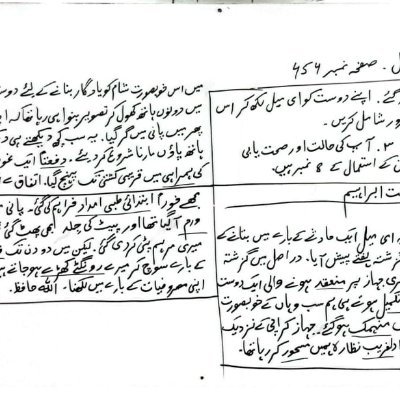 ل - صفحہ نمبر 454
گئے۔ اپنے دوست کو ای میل لکھ کر اس
ور شامل کریں۔
3. آپ کی حالت اور صحت یابی
ن کے استعمال کے 8 نمبر ہیں۔
ت ابراہیم
یہ ای میل ایک حادثے کے بارے میں بتانے کے
گزشتہ ہفتے پیش آیا۔ دراصل میں گزشتہ
ری جہاز پر منعقد ہونے والی ایک دوست
تکمیل ہوتے ہی ہم سب وہاں کے خوبصورت
میں منہمک ہوگئے۔ جہاز کراچی کے نزدیک
دلفریب نظارہ ہمیں مسحور کر رہا تھا۔
میں اس خوبصورت شام کو یادگار بنانے کے لیئے دوست
میں دونوں ہاتھ کھول کر تصویر بنوا ہی رہا تھا کہ
پھر میں پانی میں گر گیا۔ یہ سب کچھ دیکھتے ہی
ہاتھ پاؤں مارنا شروع کر دیئے۔ دفعتاً ایک
کی ہمراہی میں قریبی کشتی تک پہنچ گیا۔ اتفاق سے
مجھے فوراً ابتدائی طبی امداد فراہم کی گئی۔ پانی
ورم آگیا تھا اور پیٹ کی جلد بھی پھٹ گئی
میری مرہم پٹی کر دی گئی لیکن میں دو دن تک
کے بارے سوچ کر میرے رونگٹے کھڑے ہو جاتے ہیں
اپنی مصروفیات کے بارے میں لکھنا۔ اللہ حافظ۔